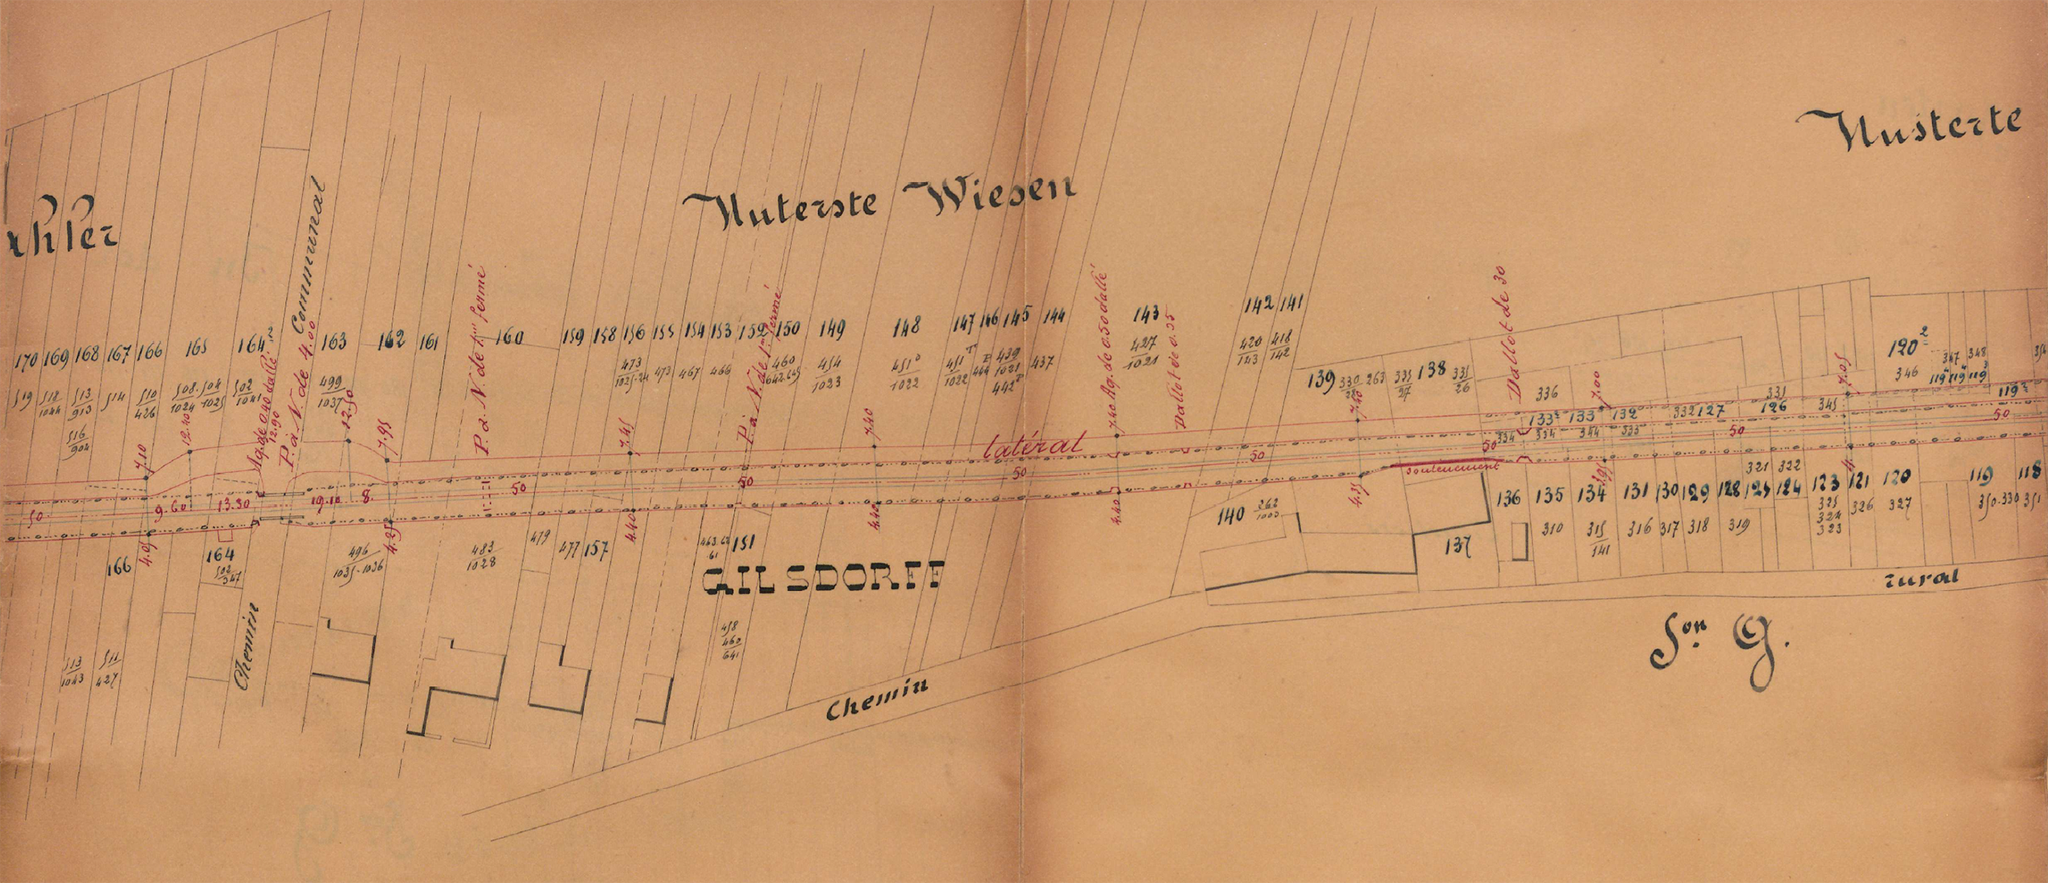 Nusterte
Unterste Wiesen
Communal
P. à N. de 4.00
Aq. de 0.40 dallé
12.90
P. à N. de 1ère fermé
P. à N. de fermé
Aq. de 0.50 dallé
Dallot de 0.35
Dallot de 30
170 169 168 167 166 165 164² 163 162 161 160 159 158 156 155 154 153 152 150 149 148 147 146 145 144 143 142 141
139 138 120²
519 512/1044 513/913 514 510/426 508·504/1024·1025 502/1041 499/1037
516/904
473 467 466 460 454/1023 451/1022 451/1022 439/1021 437 427/1021 420/143 418/142
330 263 335/27 335/26 336 346 347 348
133² 132 332 127 331 126 345 119²
334 334 344 333
7.10 12.40 12.50 7.95 7.45 7.40 7.40 7.40 7.00 7.05
latéral
50 9.60 13.50 19.10 8 50 50 50 50 50 50 50
soutènement
4.05 4.25 4.40 4.40 4.40 4.35
166 164 157 151 140 137 136 135 134 131 130 129 128 125 124 123 121 120 119 118
502/547 496/1035-1036 483/1028 479 477 262/1003
321 322
310 315/141 316 317 318 319 325 324 323 326 327 350-330 351
GILSDORFF
458/460/641
513/1043 511/427
Chemin
Chemin
rural
Son G.